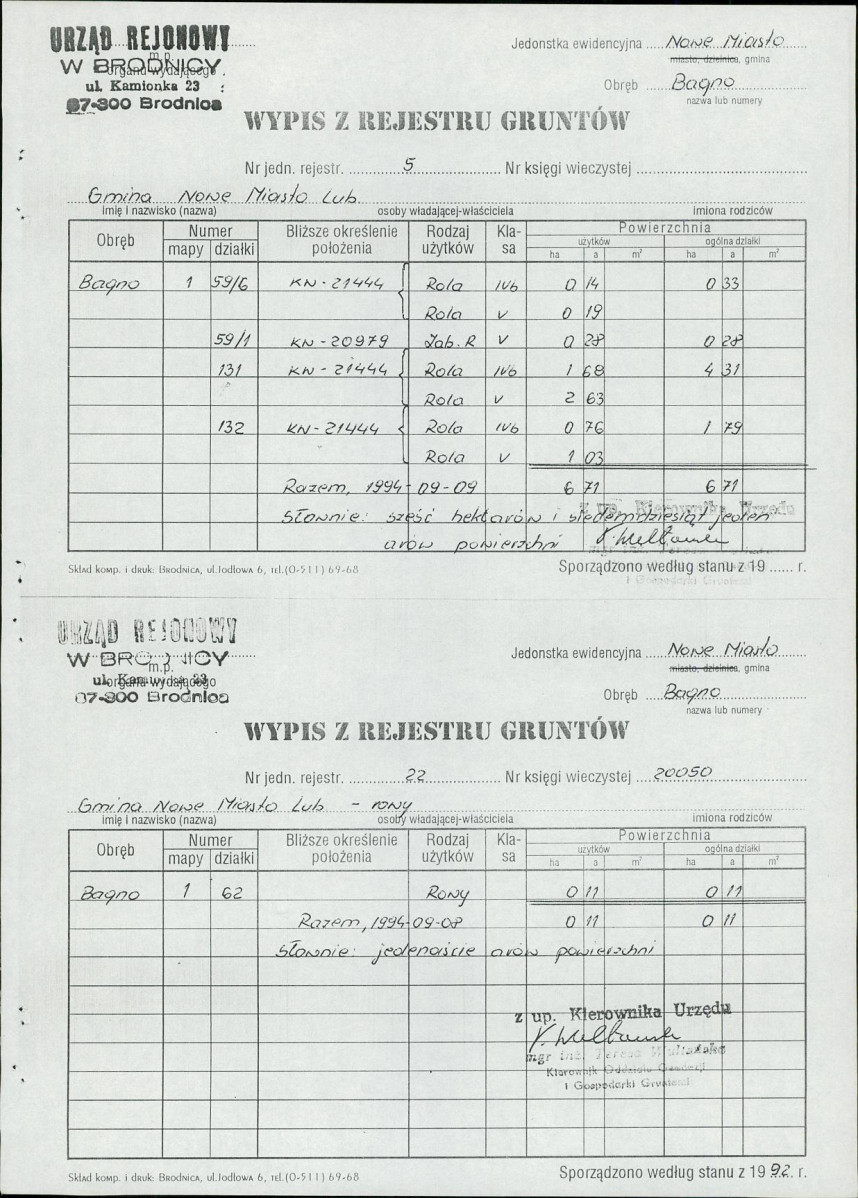 URZĄD REJONOWY
m.p.
W BRODNICY
organu wydającego
ul. Kamionka 23
87-300 Brodnica
Jedonstka ewidencyjna Nowe Miasto
miasto, dzielnica, gmina
Obręb Bagno
nazwa lub numery
WYPIS Z REJESTRU GRUNTÓW
Nr jedn. rejestr. 5 Nr księgi wieczystej
Gmina Nowe Miasto Lub.
imię i nazwisko (nazwa) osoby władającej-właściciela imiona rodziców
Obręb Numer Bliższe określenie położenia Rodzaj użytków Kla-sa Powierzchnia
mapy działki użytków ogólna działki
ha a m² ha a m²
Bagno 1 59/6 KN-21444 Rola IVb 0 14 0 33
Rola V 0 19
59/1 KN-20979 Zab. R V 0 28 0 28
131 KN-21444 Rola IVb 1 68 4 31
Rola V 2 63
132 KN-21444 Rola IVb 0 76 1 79
Rola V 1 03
Razem, 1994-09-09 6 71 6 71
z up. Kierownika Urzędu
Słownie: sześć hektarów i siedemdziesiąt jeden
arów powierzchni
mgr inż.
Skład komp. i druk: Brodnica, ul.Jodłowa 6, tel.(0-511) 69-68 Sporządzono według stanu z 19 ...... r.
i Gospodarki Gruntami
URZĄD REJONOWY
W BRODNICY
m.p.
organu wydającego
ul. Kamionka 23
87-300 Brodnica
Jedonstka ewidencyjna Nowe Miasto
miasto, dzielnica, gmina
Obręb Bagno
nazwa lub numery
WYPIS Z REJESTRU GRUNTÓW
Nr jedn. rejestr. 22 Nr księgi wieczystej 20050
Gmina Nowe Miasto Lub - rowy
imię i nazwisko (nazwa) osoby władającej-właściciela imiona rodziców
Obręb Numer Bliższe określenie położenia Rodzaj użytków Kla-sa Powierzchnia
mapy działki użytków ogólna działki
ha a m² ha a m²
Bagno 1 62 Rowy 0 11 0 11
Razem, 1994-09-08 0 11 0 11
Słownie: jedenaście arów powierzchni
z up. Kierownika Urzędu
mgr inż. Teresa
Kierownik Oddziału Geodezji
i Gospodarki Gruntami
Skład komp. i druk: Brodnica, ul.Jodłowa 6, tel.(0-511) 69-68 Sporządzono według stanu z 1992. r.